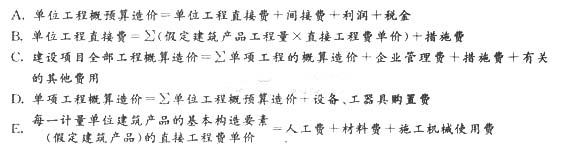 A. 单位工程概预算造价=单位工程直接费+间接费+利润+税金
B. 单位工程直接费=∑(假定建筑产品工程量×直接工程费单价)+措施费
C. 建设项目全部工程概算造价=∑单项工程的概算造价+企业管理费+措施费+有关
的其他费用
D. 单项工程概算造价=∑单位工程概预算造价+设备、工器具购置费
E. 每一计量单位建筑产品的基本构造要素
(假定建筑产品)的直接工程费单价 =人工费+材料费+施工机械使用费